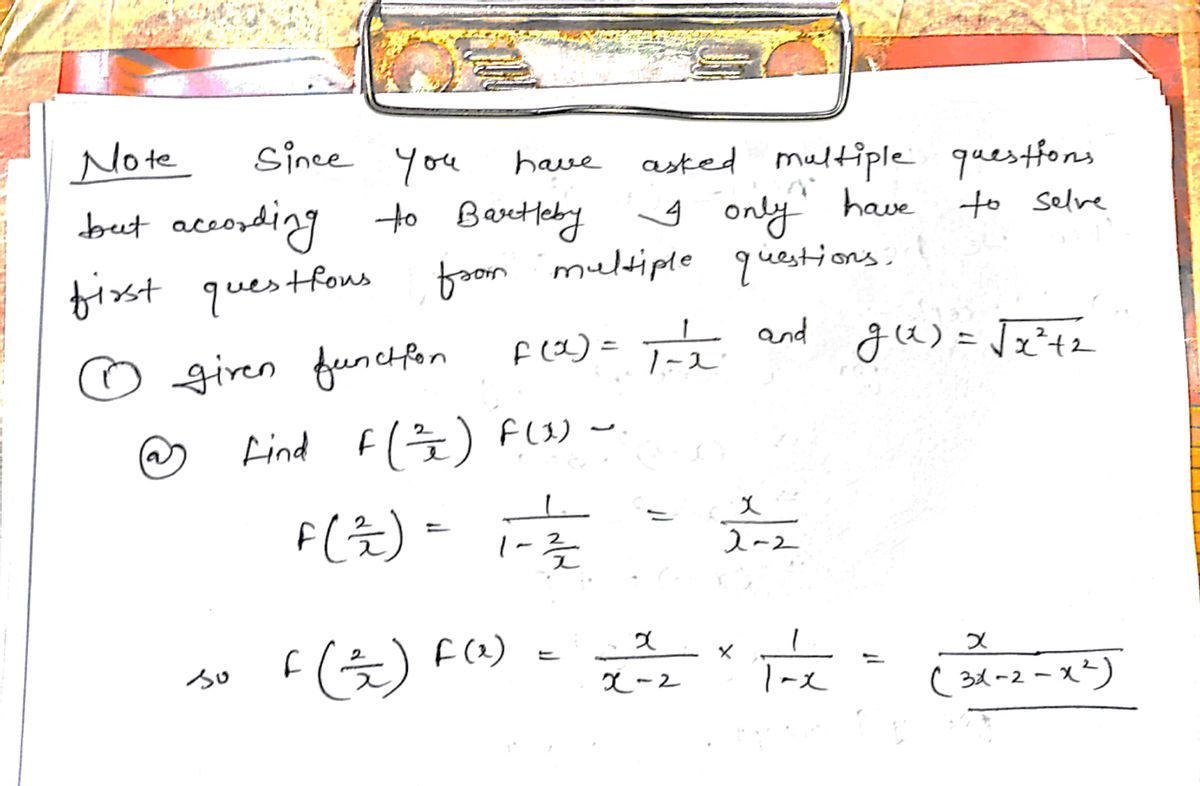 Note Since you have asked multiple questions
but according to Bartleby I only have to solve
first questions from multiple questions.
① given function f(x) = 1/(1-x) and g(x) = √(x²+2)
ⓐ find f(2/x) f(x) -
f(2/x) = 1/(1-2/x) = x/(x-2)
so f(2/x) f(x) = x/(x-2) × 1/(1-x) = x/(3x-2-x²)